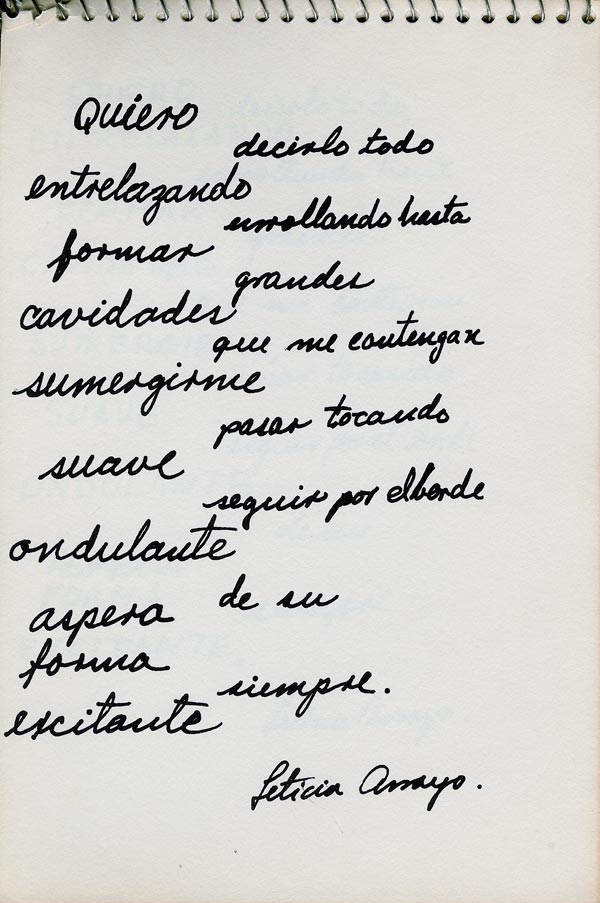 Quiero
decirlo todo
entrelazando
enrollando hasta
formar
grandes
cavidades
que me contengan
sumergirme
pasar tocando
suave
seguir por el borde
ondulante
de su
aspera
forma
siempre.
excitante
Leticia Arroyo.